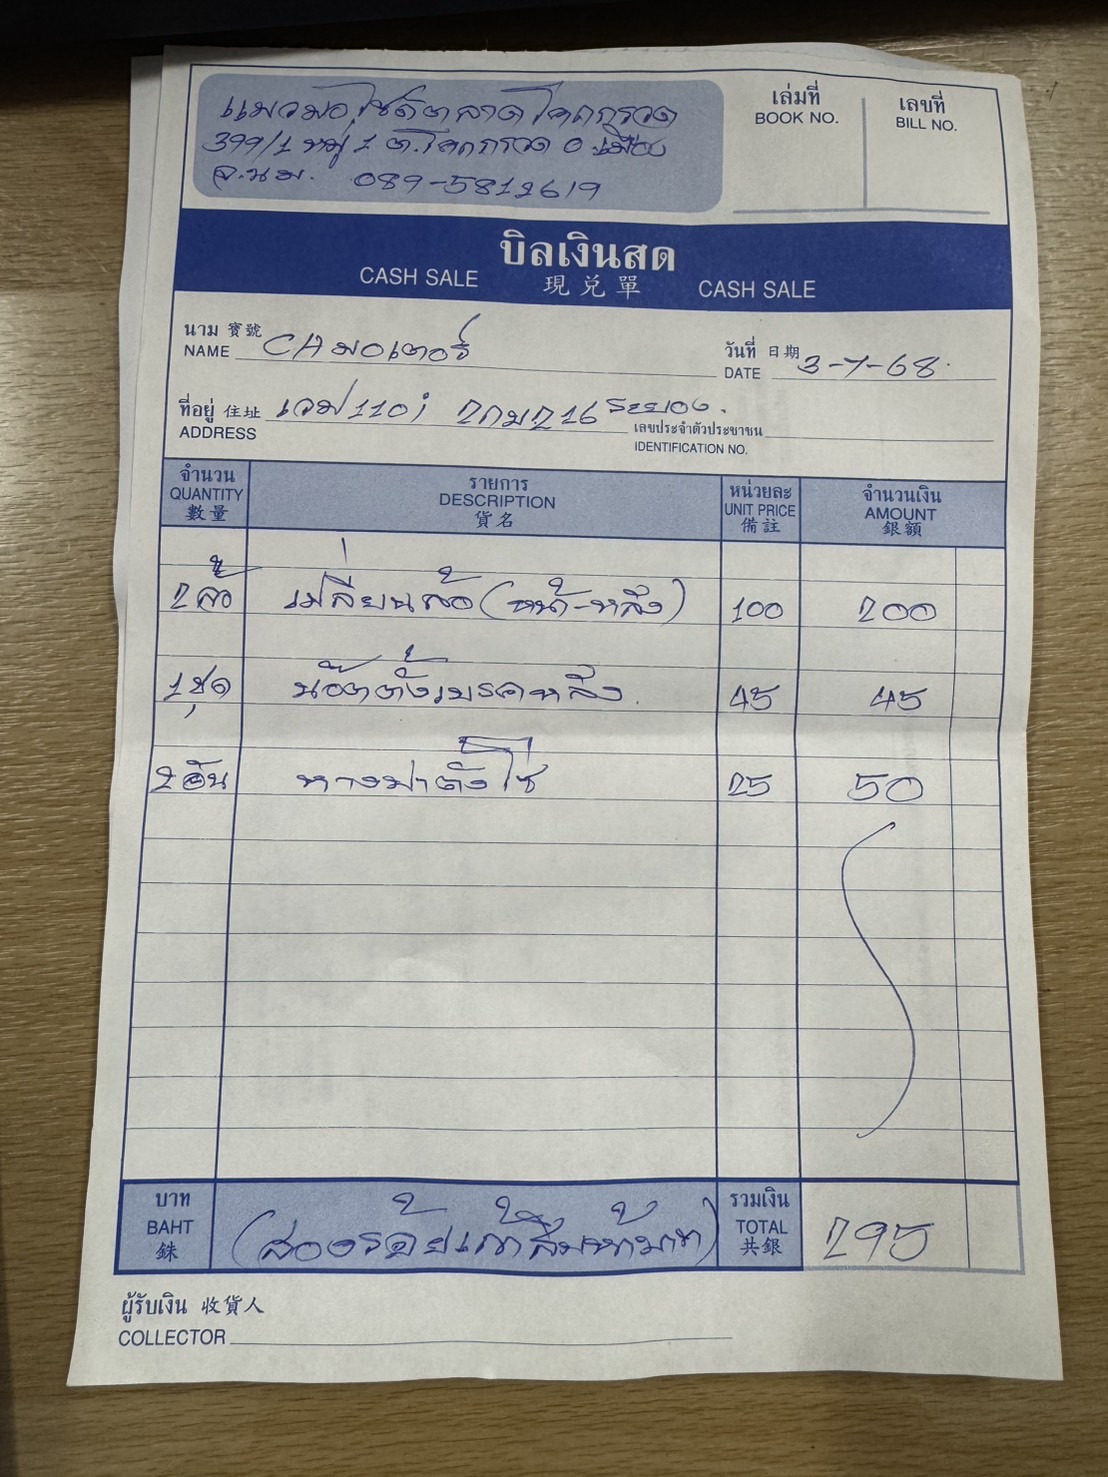 แมวมอไซด์ตลาดโคกกรวด
เล่มที่
BOOK NO.
เลขที่
BILL NO.
399/1 หมู่ 1 ต.โคกกรวด อ.เมือง
จ.นม. 089-5812619
บิลเงินสด
CASH SALE 現兌單 CASH SALE
นาม 寶號
NAME CAมอเตอร์
วันที่ 日期
DATE 3-7-68.
ที่อยู่ 住址 เวฟ110i 2กม216 ระยอง.
ADDRESS
เลขประจำตัวประชาชน
IDENTIFICATION NO.
จำนวน
QUANTITY
數量
รายการ
DESCRIPTION
貨名
หน่วยละ
UNIT PRICE
備註
จำนวนเงิน
AMOUNT
銀額
2ล้อ เปลี่ยนล้อ (หน้า-หลัง) 100 200
1ชุด น๊อตตั้งเบรคหลัง 45 45
2อัน หางปลาตั้งโซ่ 25 50
บาท
BAHT
銖
(สองร้อยเก้าสิบห้าบาท)
รวมเงิน
TOTAL
共銀
295
ผู้รับเงิน 收貨人
COLLECTOR